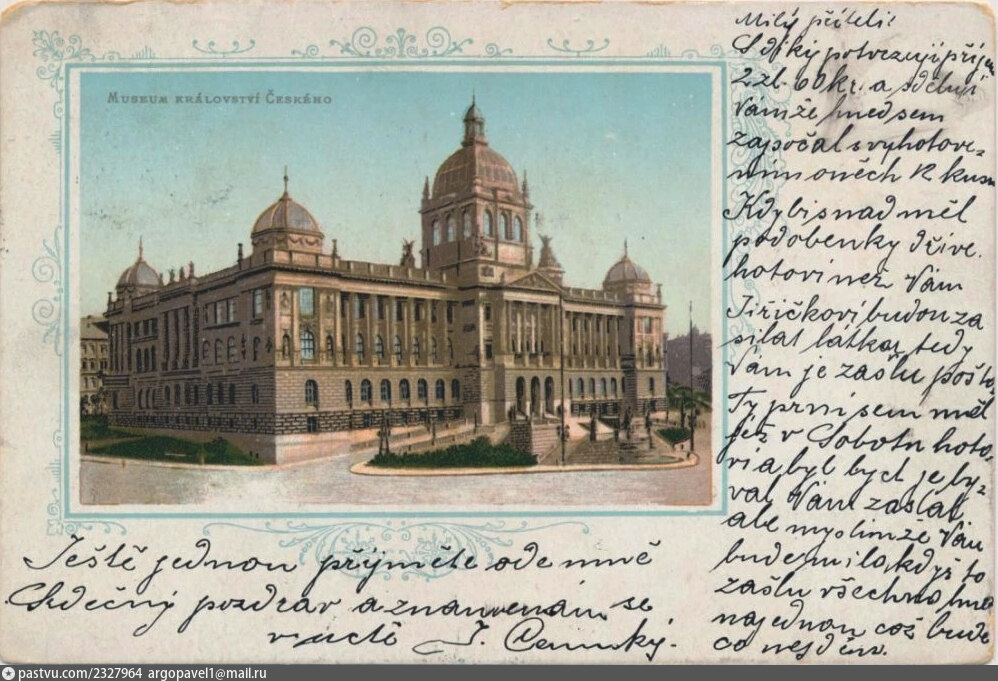 MUSEUM KRÁLOVSTVÍ ČESKÉHO
Milý příteli!
S díky potvrzuji příjem
2 zl. 60 kr. a sděluji
Vám že hned sem
započal s vyhotove-
ním oněch 12 kusu
Kdybi snad měl
podobenky dříve
hotovi než Vám
Jiříčkovi budou za
silat látku, tedy
Vám je zašlu pošto
Ty prvni sem měl
již v Sobotu hoto-
vi a byl bych je by-
val Vám zaslal
ale myslim že Vám
bude milo když to
zašlu všechno hned
najednou což bude
co nejdřiv.
Ještě jednou přijměte ode mně
Srdečný pozdrav a znamenám se
v uctě J.
pastvu.com/2327964 argopavel1@mail.ru